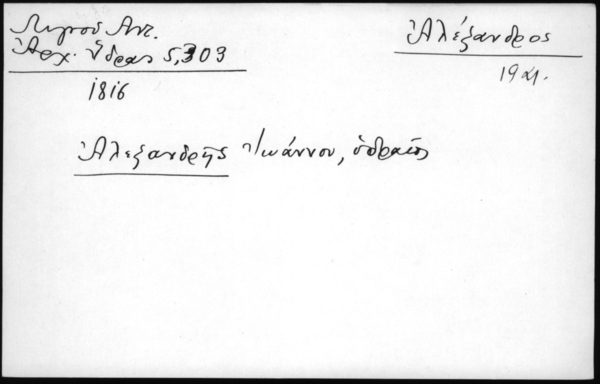 Λιγνοῦ Ἀντ.
Ἀρχ. Ὕδρας 5,303
1816
Ἀλέξανδρος
19 αι.
Ἀλεξανδρῆς Ἰωάννου, ὑδραῖος